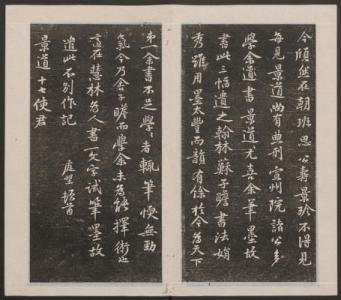 今頎然在朝班思公壽景珍不得見
每見景道尚有典刑宣州院諸公多
學余書景道尤喜余筆墨故
書此三幅遺之翰林蘇子瞻書法娟
秀雖用墨太豐而韻有餘於今為天下
第一余書不足學學者輒筆愞無勁
氣今乃舍子瞻而學余未為能擇術也
適在慧林為人書一文字試筆墨故
遣此不別作記 庭堅頓首
景道十七使君